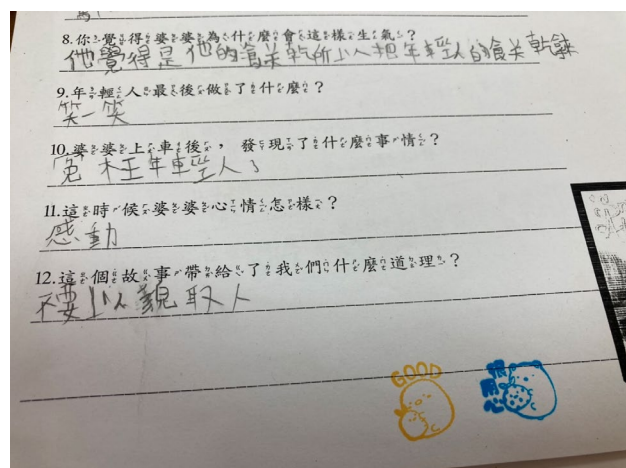 8.你覺得婆婆為什麼會這樣生氣？
他覺得是他的餅乾所以人把年輕人的餅乾
9.年輕人最後做了什麼？
笑一笑
10.婆婆上車後，發現了什麼事情？
冤枉年輕人了
11.這時候婆婆心情怎樣？
感動
12.這個故事帶給了我們什麼道理？
不要以貌取人
GOOD
很用心